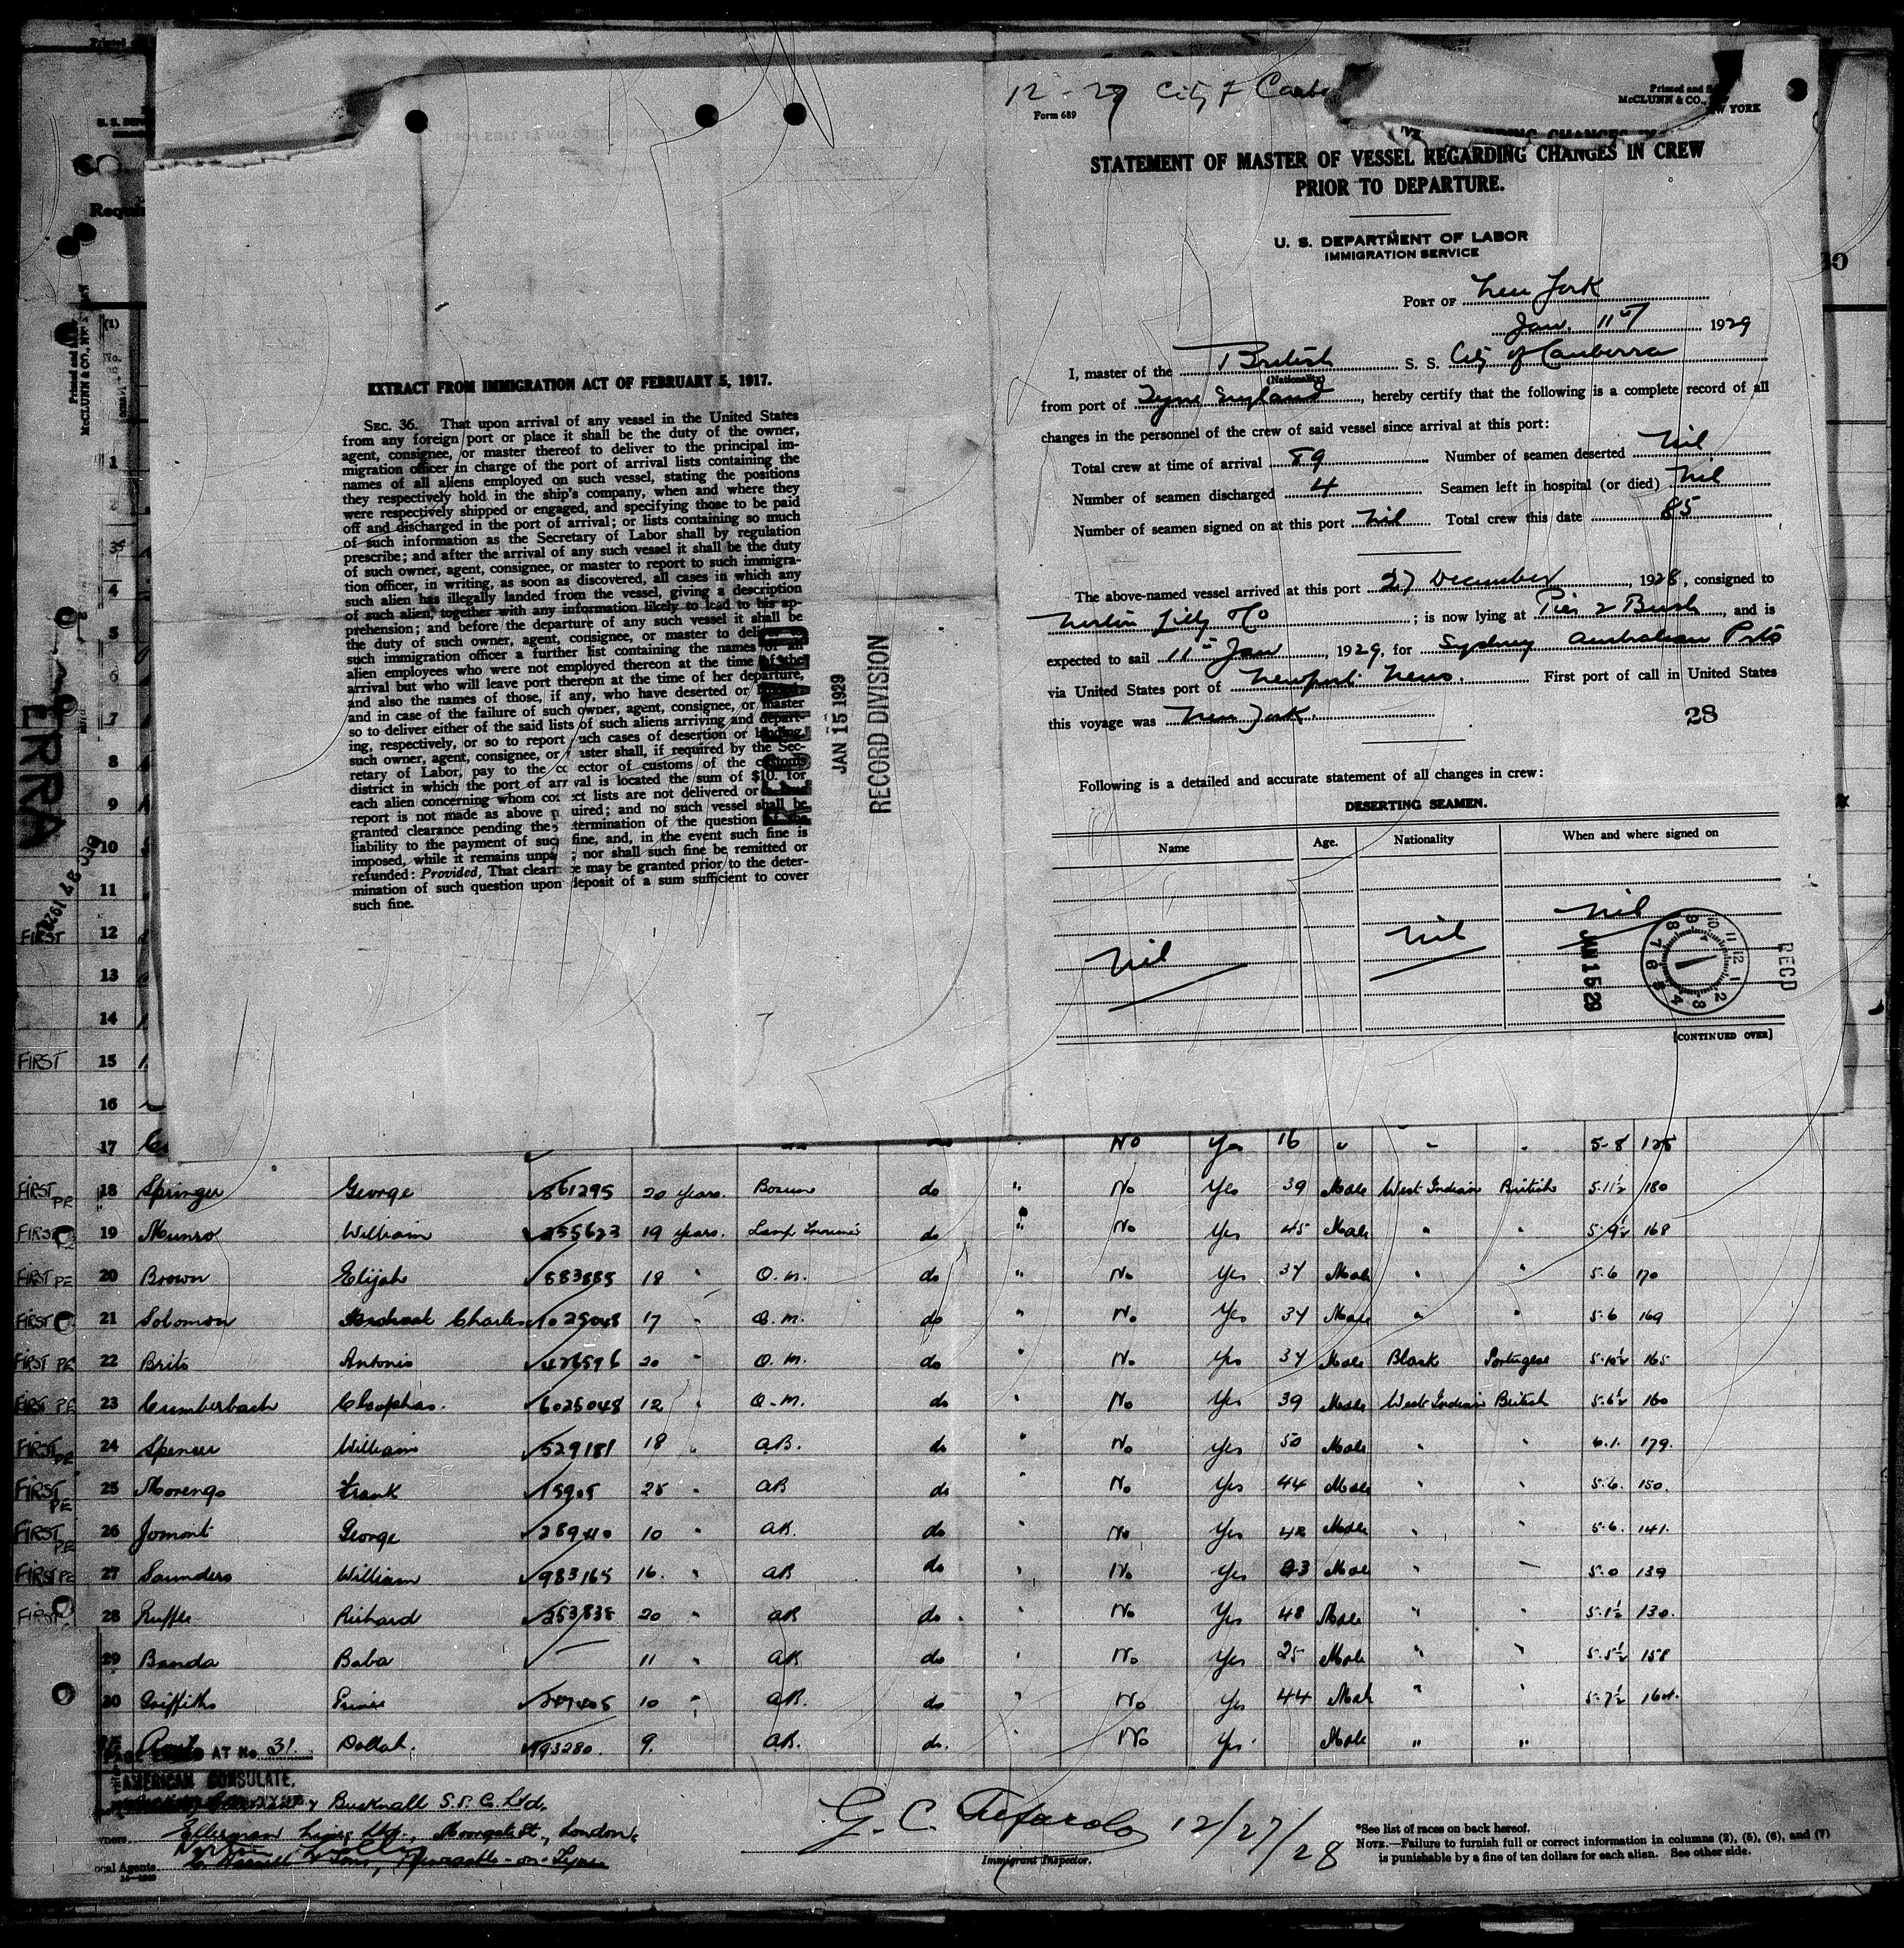 12-27 City of
Form 689
Printed and
McCLUNN & CO.,
NEW YORK
STATEMENT OF MASTER OF VESSEL REGARDING CHANGES IN CREW
PRIOR TO DEPARTURE.
U. S. DEPARTMENT OF LABOR
IMMIGRATION SERVICE
PORT OF New York
Jan. 11th 1929
I, master of the British S. S. City of Canberra
(Nationality)
from port of Tyne England, hereby certify that the following is a complete record of all
changes in the personnel of the crew of said vessel since arrival at this port:
Total crew at time of arrival 89 Number of seamen deserted Nil
Number of seamen discharged 4 Seamen left in hospital (or died) Nil
Number of seamen signed on at this port Nil Total crew this date 85
The above-named vessel arrived at this port 27 December, 1928, consigned to
Norton Lilly & Co; is now lying at Pier 2 Bush, and is
expected to sail 11th Jan, 1929, for Sydney Australian Ports
via United States port of Newport News. First port of call in United States
this voyage was New York.
28
Following is a detailed and accurate statement of all changes in crew:
DESERTING SEAMEN.
Name Age. Nationality When and where signed on
Nil Nil Nil
JAN 15 29
RECD
[CONTINUED OVER]
EXTRACT FROM IMMIGRATION ACT OF FEBRUARY 5, 1917.
SEC. 36. That upon arrival of any vessel in the United States
from any foreign port or place it shall be the duty of the owner,
agent, consignee, or master thereof to deliver to the principal im-
migration officer in charge of the port of arrival lists containing the
names of all aliens employed on such vessel, stating the positions
they respectively hold in the ship's company, when and where they
were respectively shipped or engaged, and specifying those to be paid
off and discharged in the port of arrival; or lists containing so much
of such information as the Secretary of Labor shall by regulation
prescribe; and after the arrival of any such vessel it shall be the duty
of such owner, agent, consignee, or master to report to such immigra-
tion officer, in writing, as soon as discovered, all cases in which any
such alien has illegally landed from the vessel, giving a description
of such alien, together with any information likely to lead to his ap-
prehension; and before the departure of any such vessel it shall be
the duty of such owner, agent, consignee, or master to deliver to
such immigration officer a further list containing the names of all
alien employees who were not employed thereon at the time of the
arrival but who will leave port thereon at the time of her departure,
and also the names of those, if any, who have deserted or
and in case of the failure of such owner, agent, consignee, or master
so to deliver either of the said lists of such aliens arriving and depart-
ing, respectively, or so to report such cases of desertion or landing,
such owner, agent, consignee, or master shall, if required by the Sec-
retary of Labor, pay to the collector of customs of the customs
district in which the port of arrival is located the sum of $10. for
each alien concerning whom correct lists are not delivered or
report is not made as above required; and no such vessel shall be
granted clearance pending the determination of the question of the
liability to the payment of such fine, and, in the event such fine is
imposed, while it remains unpaid; nor shall such fine be remitted or
refunded: Provided, That clearance may be granted prior to the deter-
mination of such question upon deposit of a sum sufficient to cover
such fine.
JAN 15 1929
RECORD DIVISION
17 No Yes 16 " " " 5-8 125
FIRST PE 18 Springer George 861295 20 Years. Bosun do " No Yes 39 Male West Indian British 5.11½ 180
FIRST 19 Munro William 455623 19 Years. Lamp Trimmer do " No Yes 45 Male " " 5.9½ 168
FIRST PE 20 Brown Elijah 883885 18 " Q.M. do " No Yes 37 Male " " 5.6 170
FIRST 21 Solomon Charles 1025048 17 " Q.M. do " No Yes 37 Male " " 5.6 169
FIRST PE 22 Brito Antonio 426596 20 " Q.M. do " No Yes 37 Male Black Portugese 5.10½ 165
FIRST PE 23 Cumberbach Cleophas. 6025048 12 " Q.M. do " No Yes 39 Male West Indian British 5.6½ 160
FIRST PE 24 Spencer William 529181 18 " A.B. do " No Yes 50 Male " " 6.1. 179.
FIRST PE 25 Morengo Frank 15905 28 " AB do " No Yes 44 Male " " 5.6. 150.
FIRST PE 26 Jomont George 289410 10 " AB. do " No Yes 42 Male " " 5.6. 141.
FIRST PE 27 Saunders William 983165 16. " AB do " No Yes Male " 5.0 139
FIRST 28 Ruffle Richard 253838 20 " AB do. " No Yes 48 Male " " 5.1½ 130.
29 Banda Baba 11 " AB do " No Yes 25 Male " " 5.5½ 158
30 Griffiths 347405 10 " AB. do " No Yes 44 Male " " 5.7½ 164.
Dollah. 193280. 9. AB. do. " No Yes. Male " "
AT No. 31
AMERICAN CONSULATE,
& Bucknall S.S. Co. Ltd.
Ellerman Lines Ltd., Moorgate St., London.
Norton Lilly
Local Agents & Sons, Newcastle-on-Tyne
12/27/28
Immigrant Inspector.
*See list of races on back hereof.
NOTE.—Failure to furnish full or correct information in columns (2), (5), (6), and (7)
is punishable by a fine of ten dollars for each alien. See other side.